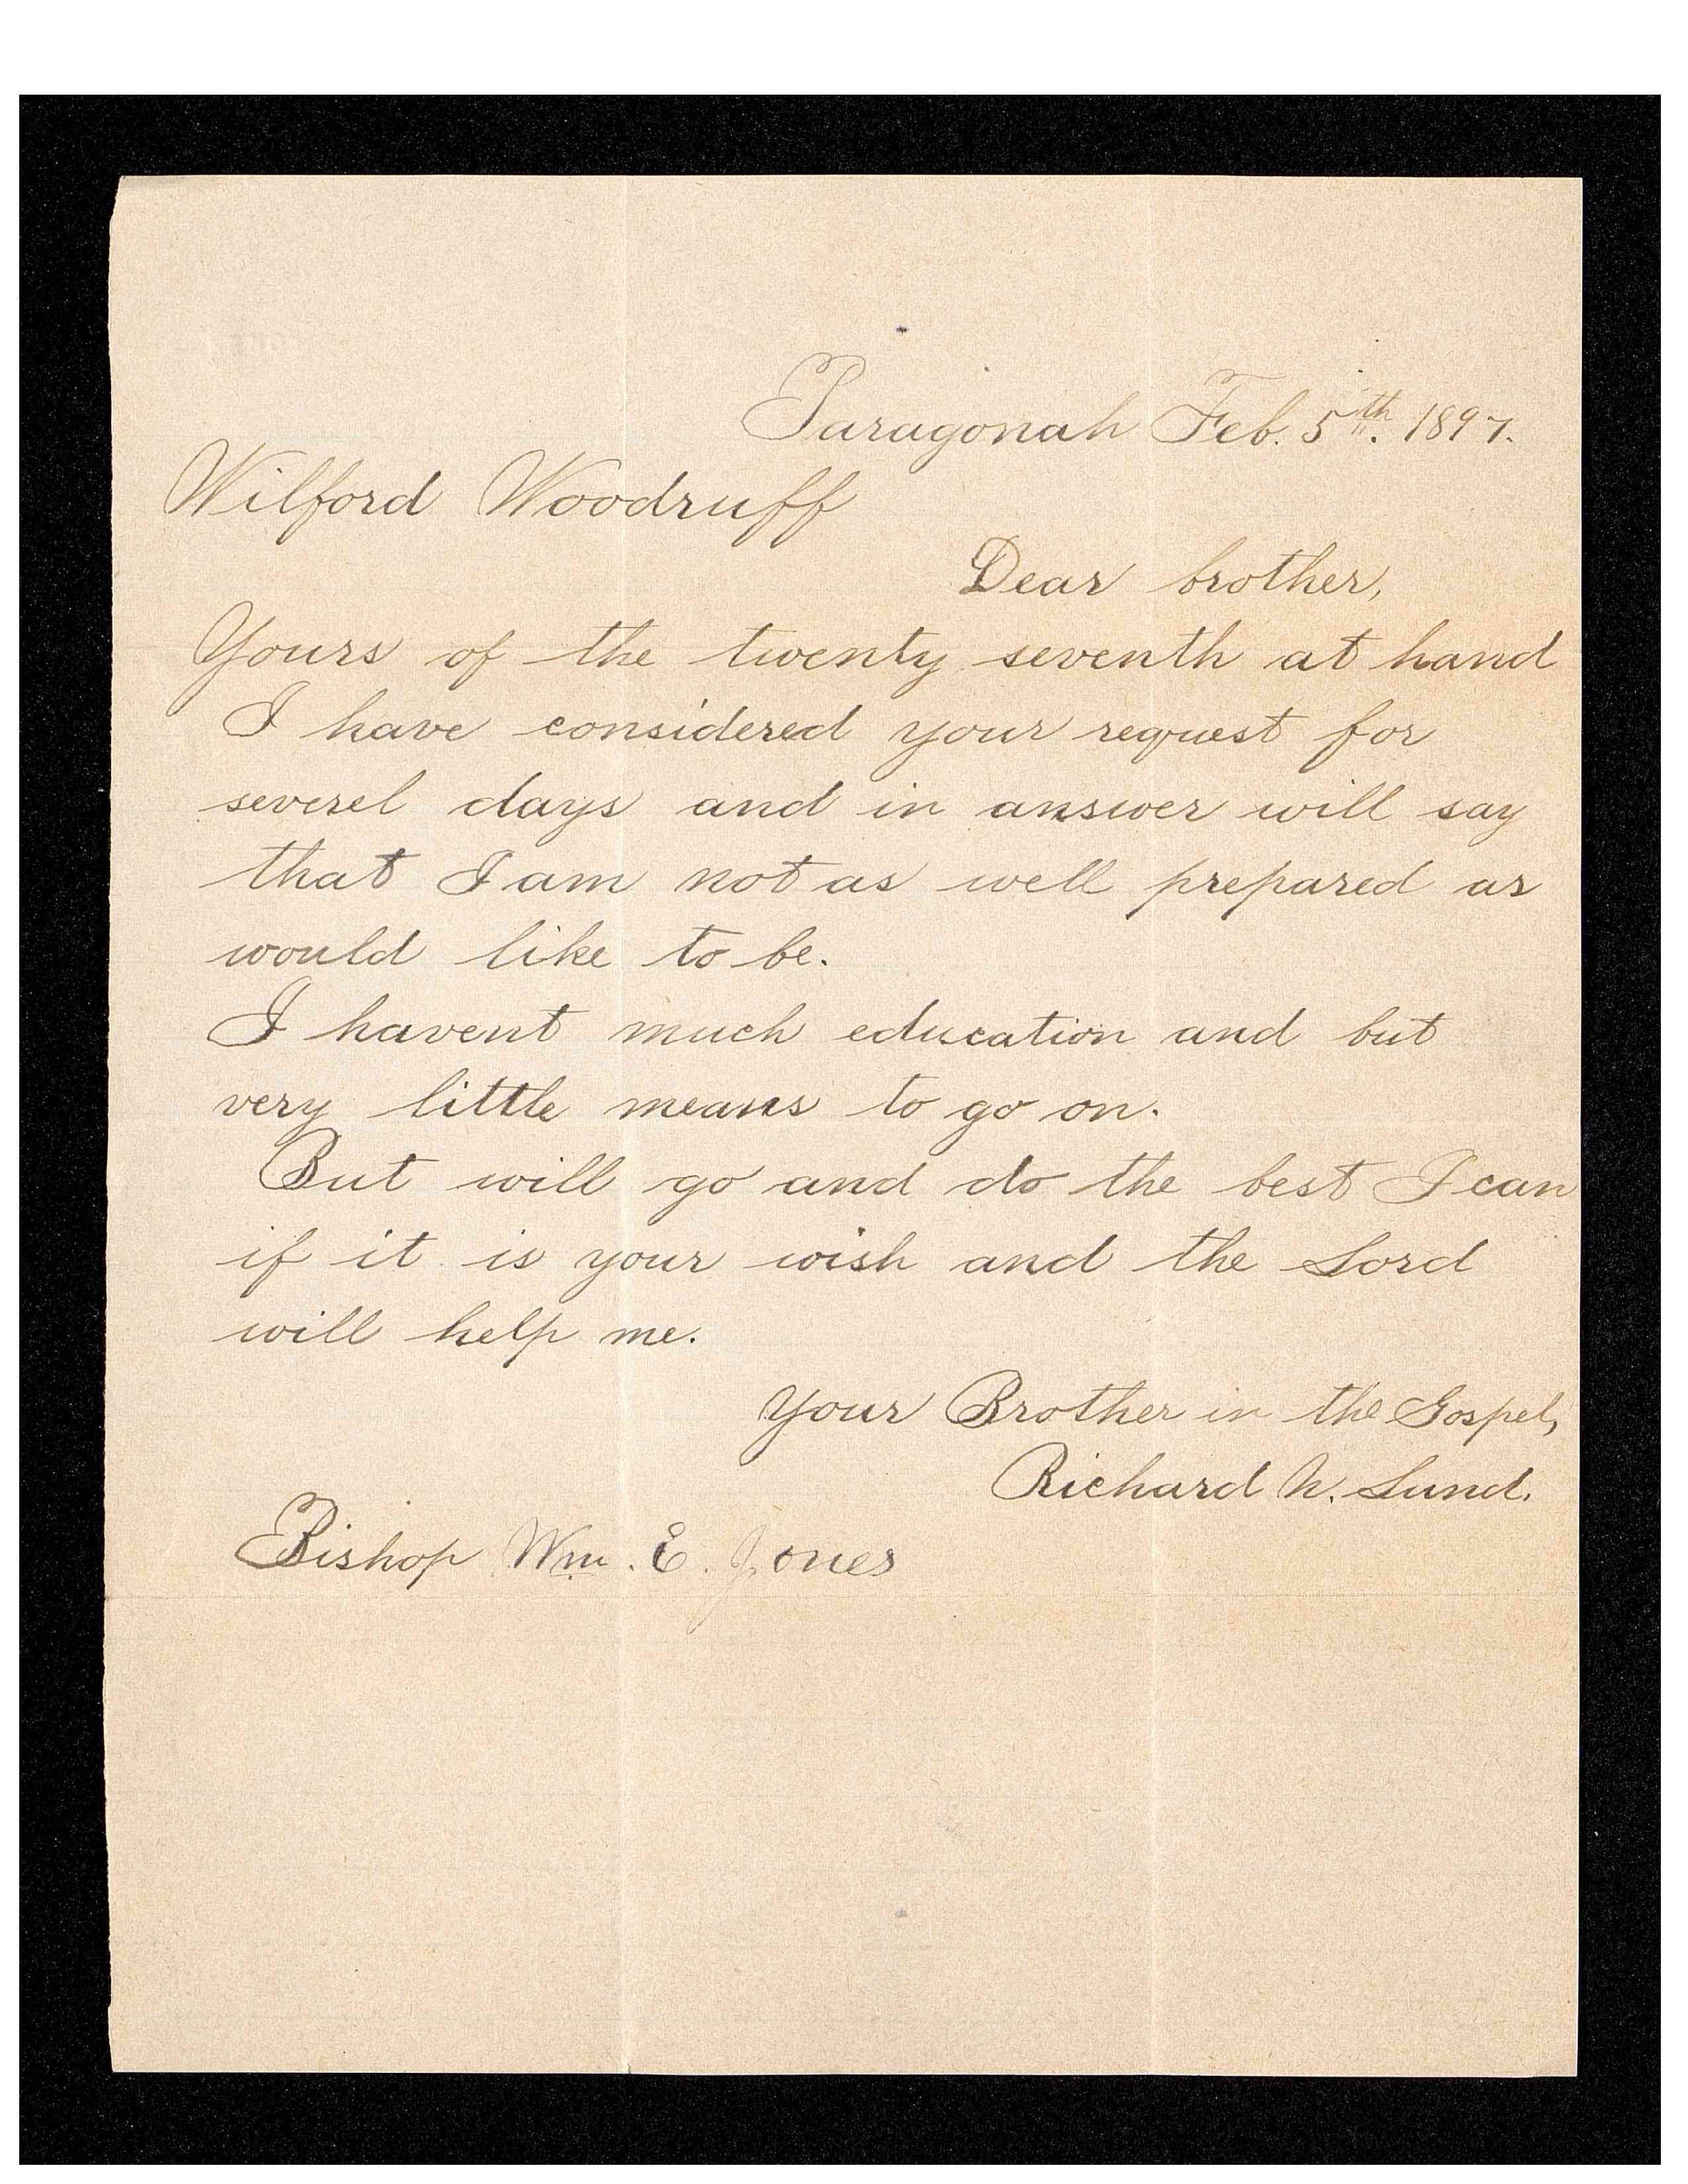 Paragonah Feb. 5th. 1897.
Wilford Woodruff
Dear brother,
Yours of the twenty seventh at hand
I have considered your request for
severel days and in answer will say
that I am not as well prepared as
would like to be.
I havent much education and but
very little means to go on.
But will go and do the best I can
if it is your wish and the Lord
will help me.
Your Brother in the Gospel,
Richard N. Lund.
Bishop Wm. E. Jones